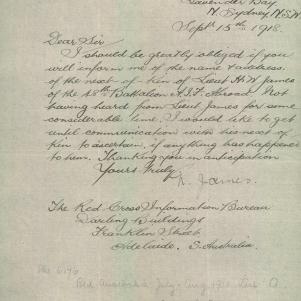 Lavender Bay
N. Sydney N.S.W
Sept 15th 1918.
Dear Sir
I should be greatly obliged if you
will inform me of the name & address
of the next of kin of Lieut H.W. James
of the 48th Battalion A.I.F. Abroad. Not
having heard from Lieut James for some
considerable time. I would like to get
into communication with his next of
kin to ascertain, if anything has happened
to him. Thanking you in anticipation
Yours truly
James.
The Red Cross Information Bureau
Darling Buildings
Franklin Street
Adelaide. S. Australia.